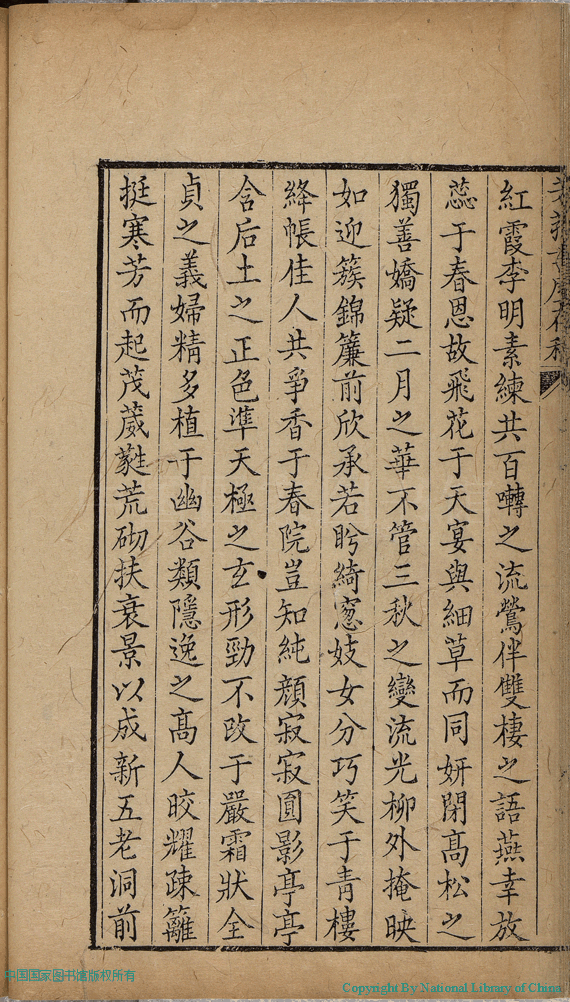 紅霞李明素練共百囀之流鶯伴雙棲之語燕幸放
蕊于春恩故飛花于天宴與細草而同妍閉高松之
獨善嬌疑二月之華不管三秋之變流光柳外掩映
如迎簇錦簾前欣承若盻綺窓妓女分巧笑于青樓
絳帳佳人共爭香于春院豈知純顔寂寂圓影亭亭
含后土之正色準天極之玄形勁不改于嚴霜狀全
貞之義婦精多植于幽谷類隱逸之高人晈耀疎籬
挺寒芳而起茂葳蕤荒砌扶衰景以成新五老洞前
中国国家图书馆版权所有
Copyright By National Library of China